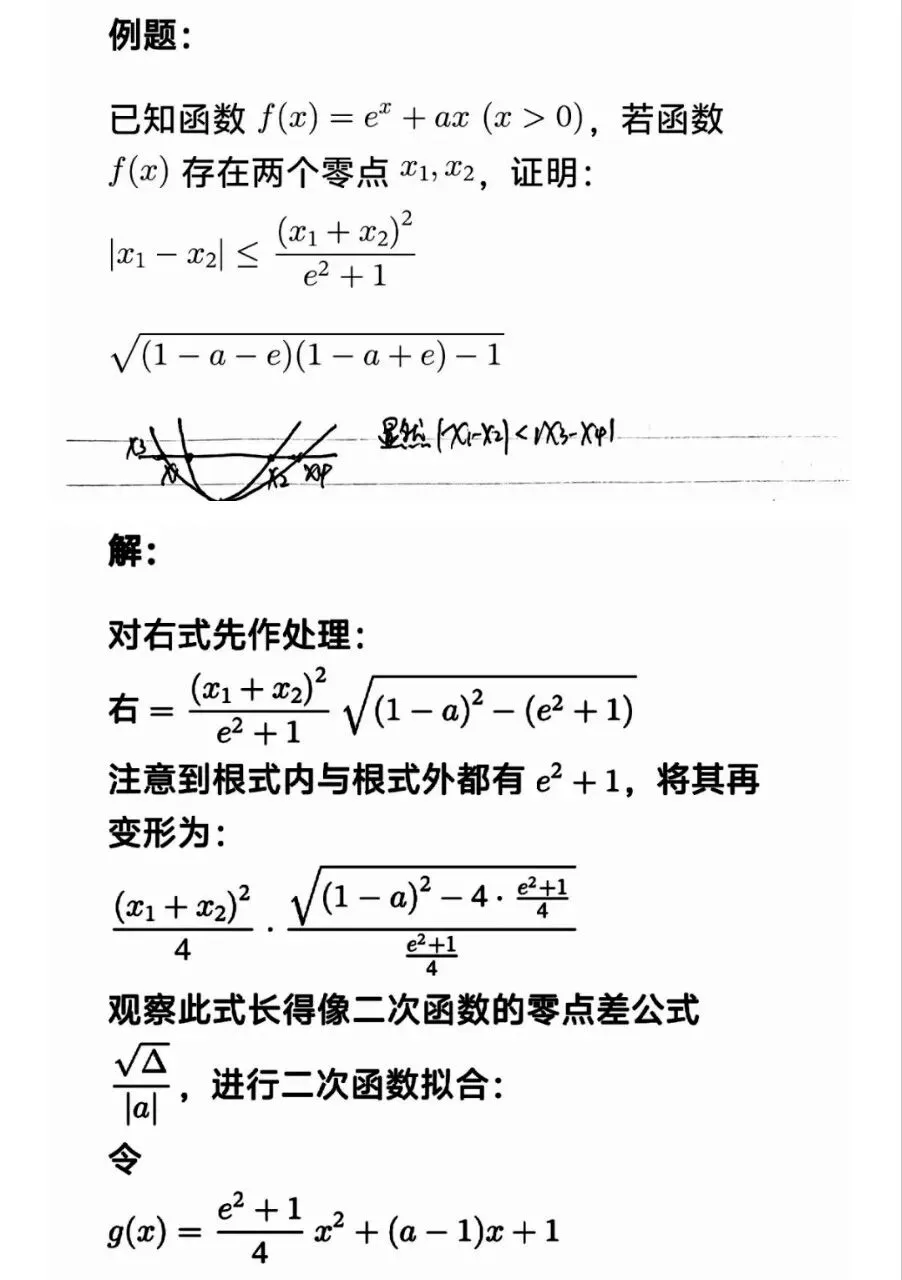 例题：
已知函数 f(x) = e^x + ax (x > 0)，若函数
f(x) 存在两个零点 x₁, x₂，证明：
|x₁ − x₂| ≤ (x₁ + x₂)² / (e² + 1)
√((1 − a − e)(1 − a + e) − 1)
x₃ x₁ x₂ x₄ 显然 |x₁-x₂| < |x₃-x₄|
解：
对右式先作处理：
右 = (x₁ + x₂)² / (e² + 1) √((1 − a)² − (e² + 1))
注意到根式内与根式外都有 e² + 1，将其再
变形为：
(x₁ + x₂)² / 4 · √((1 − a)² − 4 · (e²+1)/4) / ((e²+1)/4)
观察此式长得像二次函数的零点差公式
√Δ / |a|，进行二次函数拟合：
令
g(x) = (e² + 1)/4 x² + (a − 1)x + 1